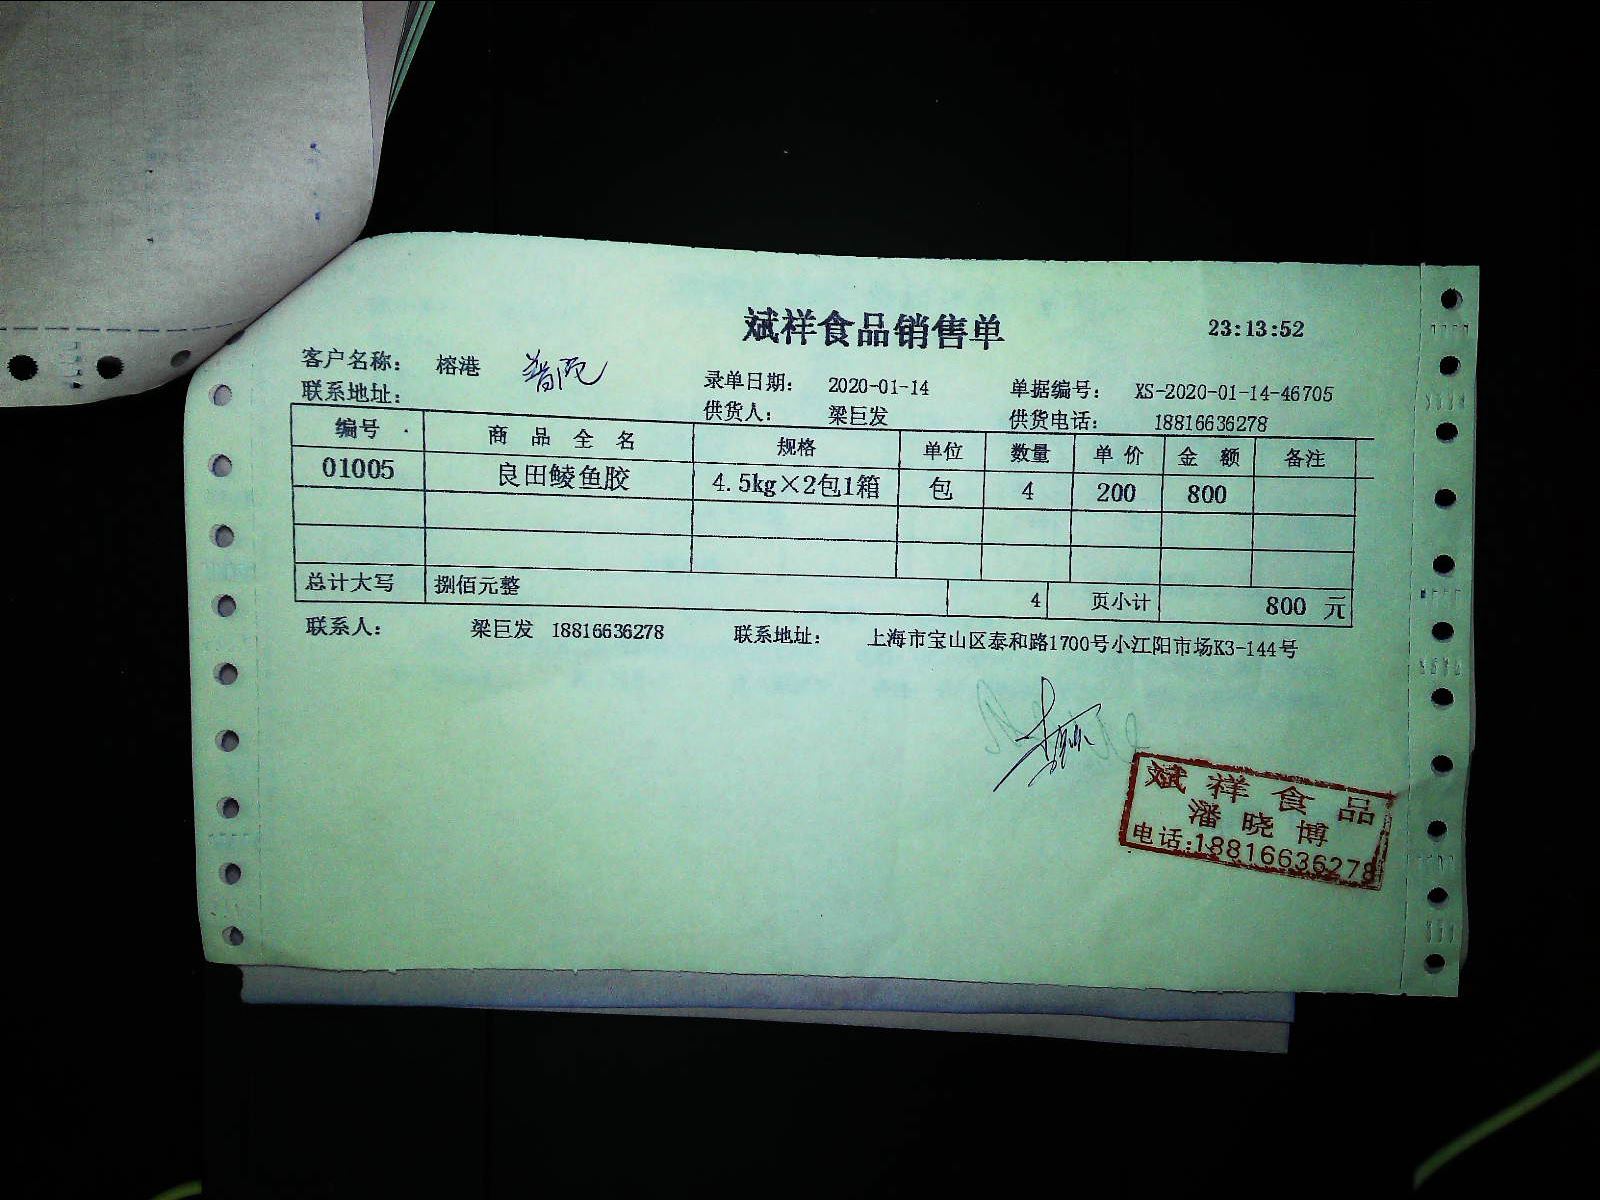 斌祥食品销售单 23:13:52
客户名称： 榕港 普陀
联系地址： 录单日期： 2020-01-14 单据编号： XS-2020-01-14-46705
供货人： 梁巨发 供货电话： 18816636278
编号 商品全名 规格 单位 数量 单价 金额 备注
01005 良田鲮鱼胶 4.5kg×2包1箱 包 4 200 800
总计大写 捌佰元整 4 页小计 800 元
联系人： 梁巨发 18816636278 联系地址： 上海市宝山区泰和路1700号小江阳市场K3-144号
斌祥食品
潘晓博
电话:18816636278